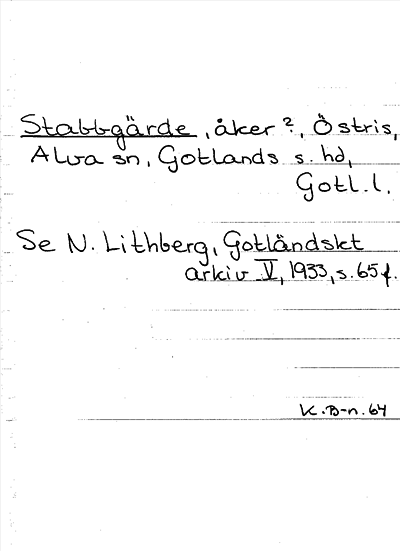 Stabbgärde, åker?, Östris,
Alva sn, Gotlands s. hd,
Gotl. l.
Se N. Lithberg, Gotländskt
arkiv V, 1933, s. 65 f.
K. B-n. 64